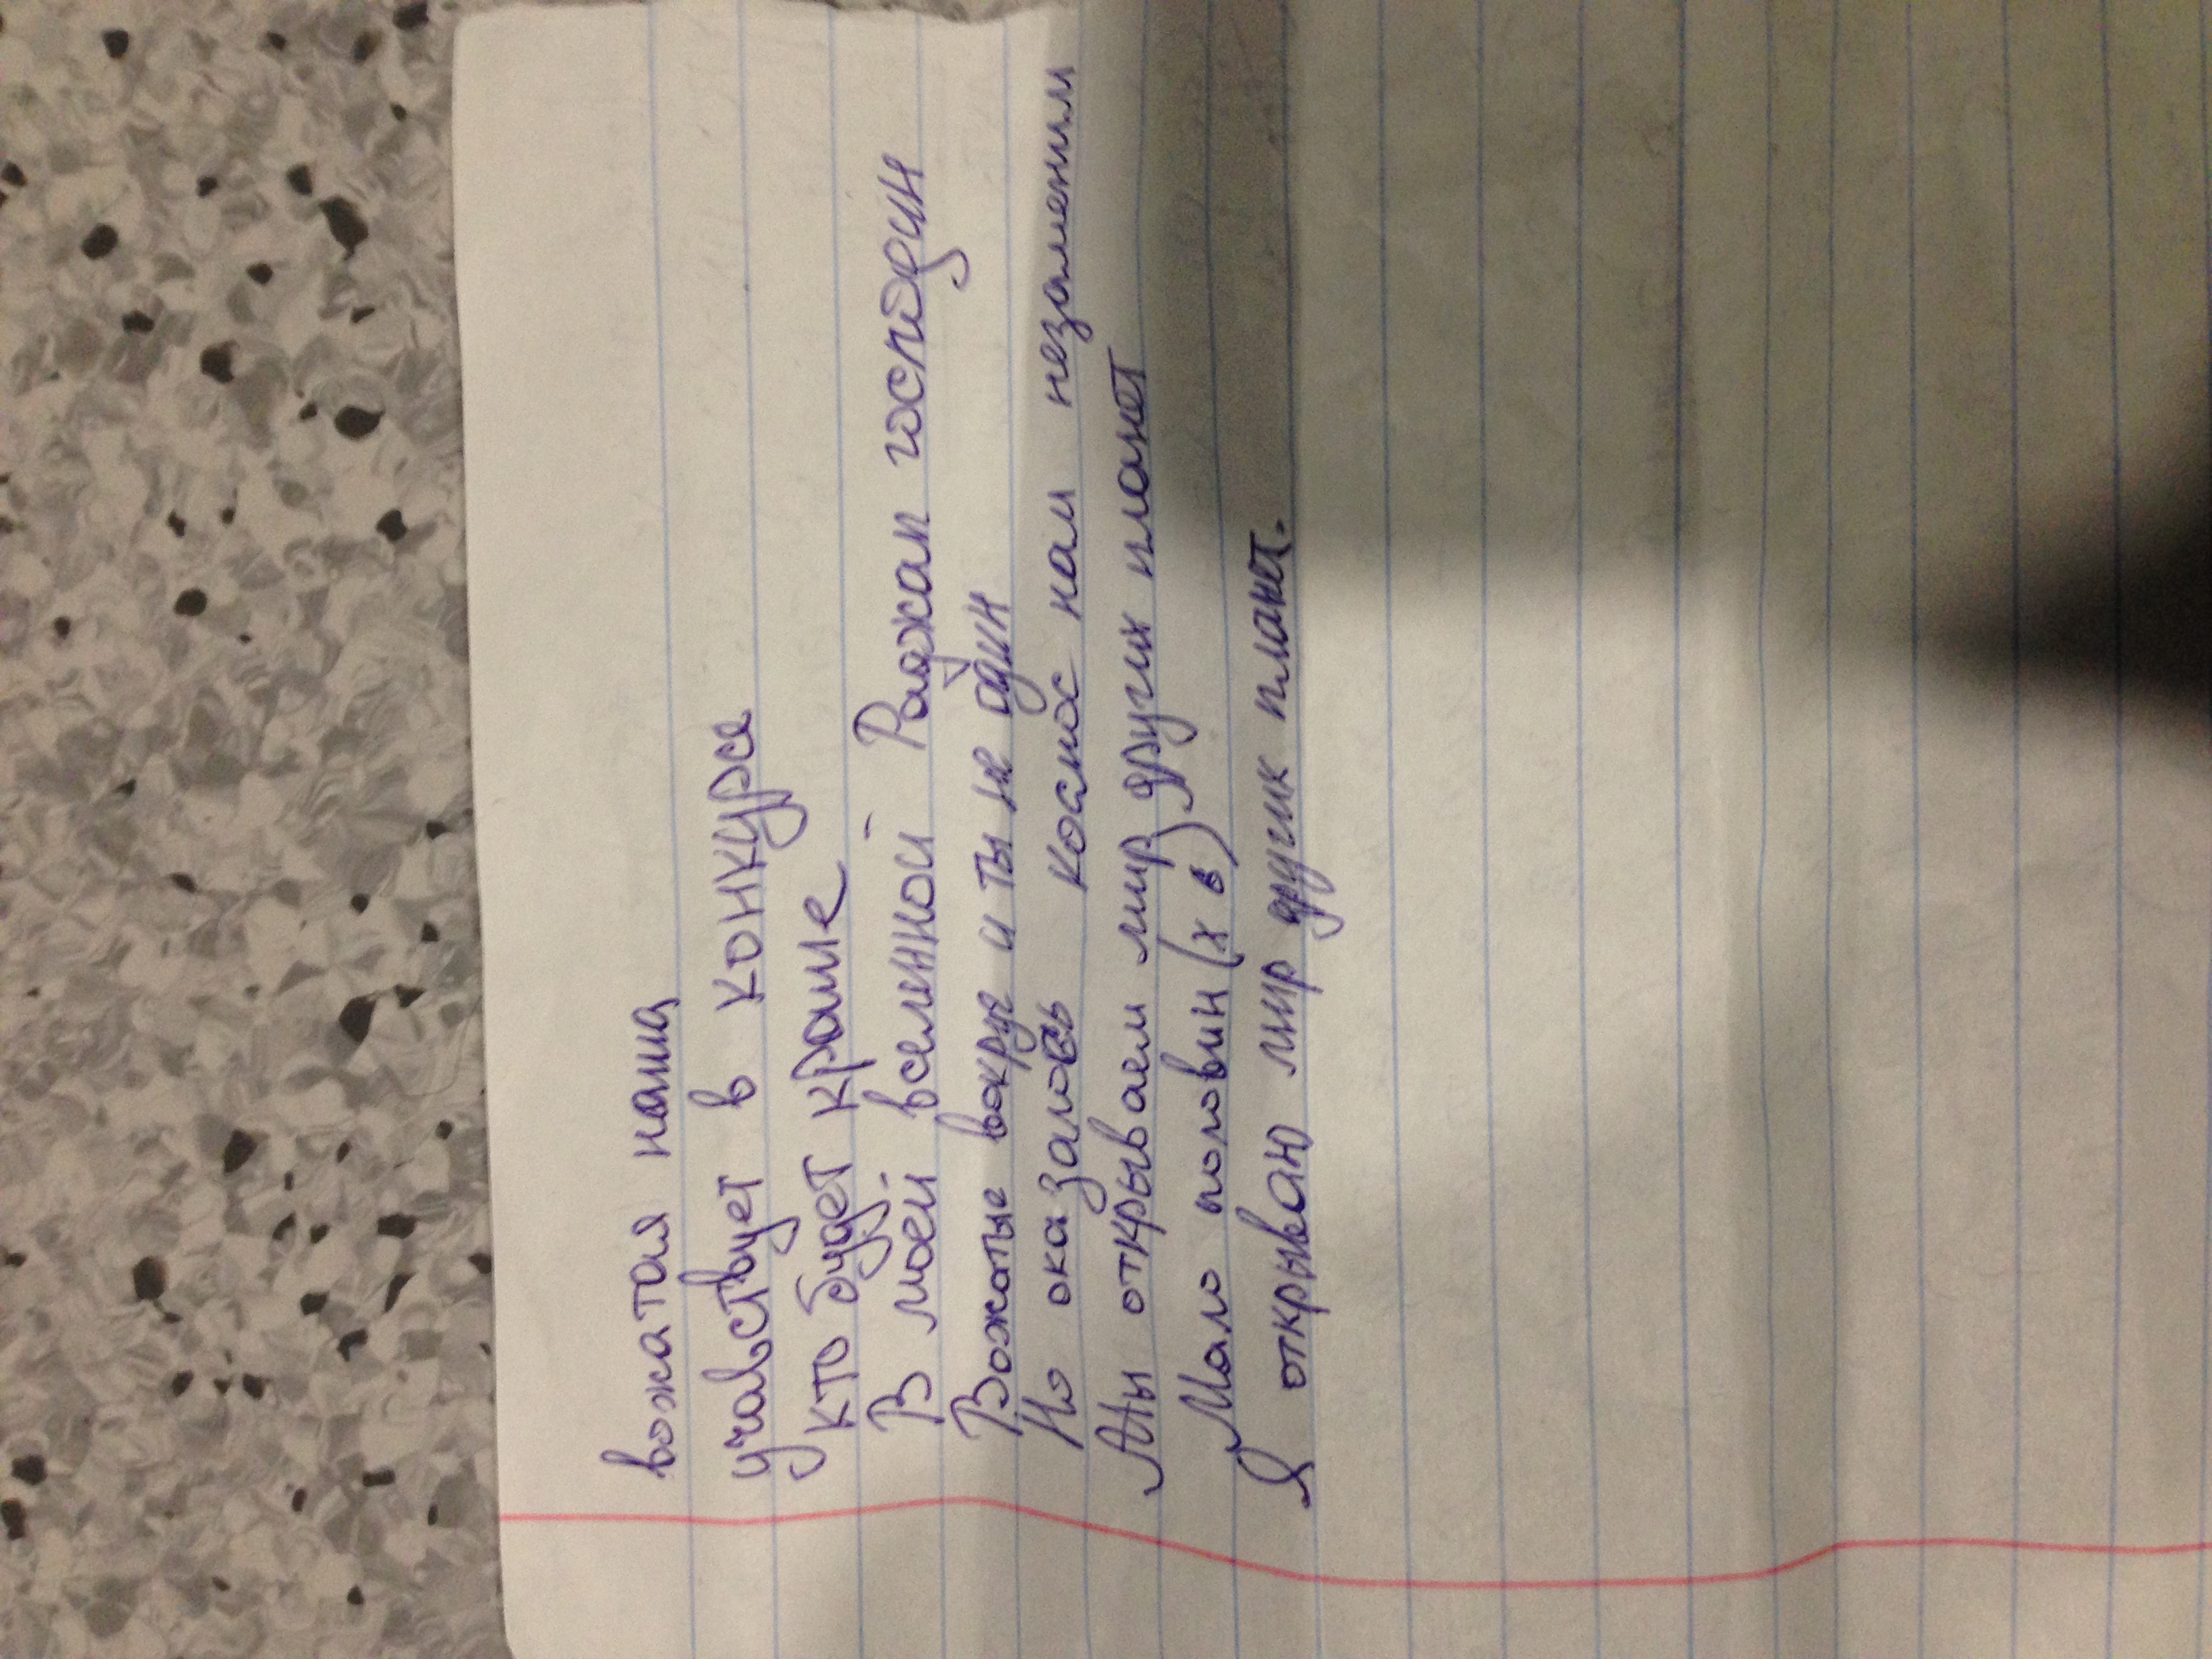 вожатая наша
учавствует в конкурсе
кто будет краше
В моей вселенной Раджап господин
Вожатые вокруг и ты не один
Но оказалось космос нам незаменим
Мы открываем мир других планет
Мало половин (х 6)
Я открываю мир других планет.